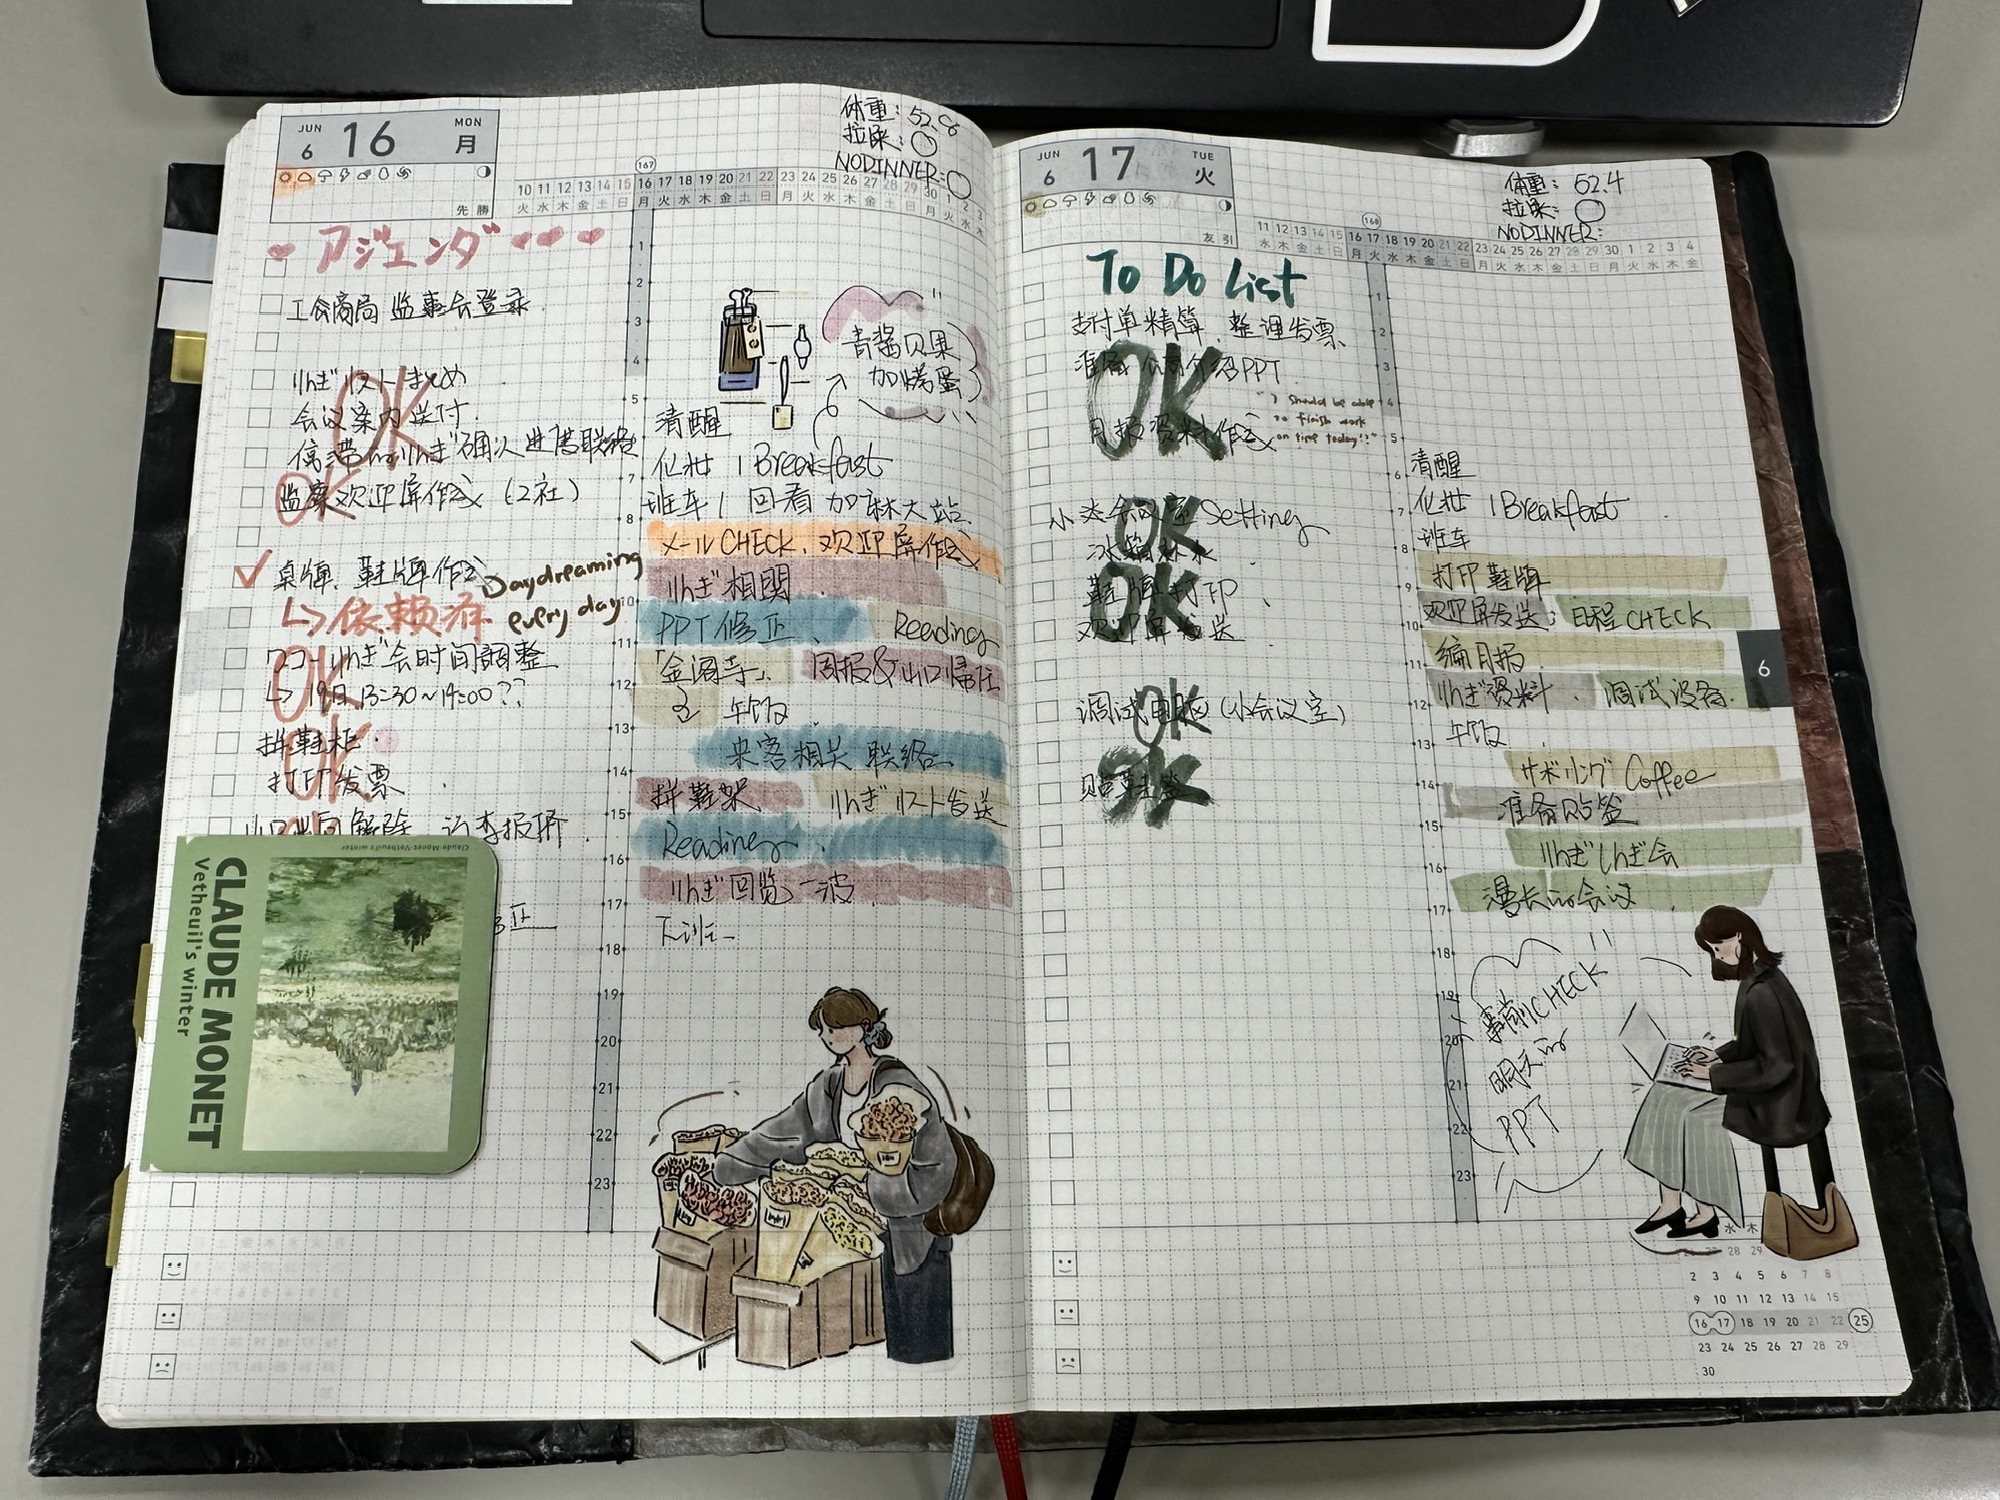 JUN 6 16 MON 月
先勝
体重: 52.6
拉屎: ○
NODINNER: ○
167
10 11 12 13 14 15 16 17 18 19 20 21 22 23 24 25 26 27 28 29 30 1 2 3
火 水 木 金 土 日 月 火 水 木 金 土 日 月 火 水 木 金 土 日 月 火 水 木
アジェンダ
工会商局 监事会登录
りんぎリストまとめ
会议案内送付
OK
监察欢迎屏作成 (2社)
OK
桌牌、鞋牌作成
↳依赖済
Daydreaming
every day
りんぎ会时间調整
↳ 19日 13:30~14:00??
OK
拼鞋柜
打印发票
OK
CLAUDE MONET
Vetheuil's winter
Claude Monet-Vetheuil's winter
正
1
2
3
4
5
7
8
10
11
12
13
14
15
16
17
18
19
20
21
22
23
青酱贝果
加烤蛋
清醒
化妆 / Breakfast
班车 / 回看 加森大站
メールCHECK、欢迎屏作成
りんぎ相関
PPT修正、 Reading
「金阁寺」 周报&山口帰任
午饭
来客相关 联络
拼鞋架 りんぎリスト发送
Reading
りんぎ回览 一波
下班
JUN 6 17 TUE 火
友引
体重: 52.4
拉屎: ○
NODINNER:
168
11 12 13 14 15 16 17 18 19 20 21 22 23 24 25 26 27 28 29 30 1 2 3 4
水 木 金 土 日 月 火 水 木 金 土 日 月 火 水 木 金 土 日 月 火 水 木 金
To Do List
支付单精算、整理发票
准备 公司介绍PPT
OK
"I should be able
to finish work
on time today!!"
月报资料作成
小达会议室Setting
OK
冰箱补水
鞋牌打印
OK
欢迎屏发送
调试电脑(小会议室)
OK
贴鞋签
OK
1
2
3
4
5
6
7
8
9
10
11
12
13
14
15
16
17
18
19
20
21
22
23
清醒
化妆 / Breakfast
班车
打印鞋牌
欢迎屏发送; 日程CHECK
编月报
りんぎ资料、 调试设备
午饭
サボリング Coffee
准备贴签
りんぎしんぎ会
漫长的会议
事前CHECK
明天的
PPT
6
水 木
28 29
2 3 4 5 6 7 8
9 10 11 12 13 14 15
16 17 18 19 20 21 22 25
23 24 25 26 27 28 29
30